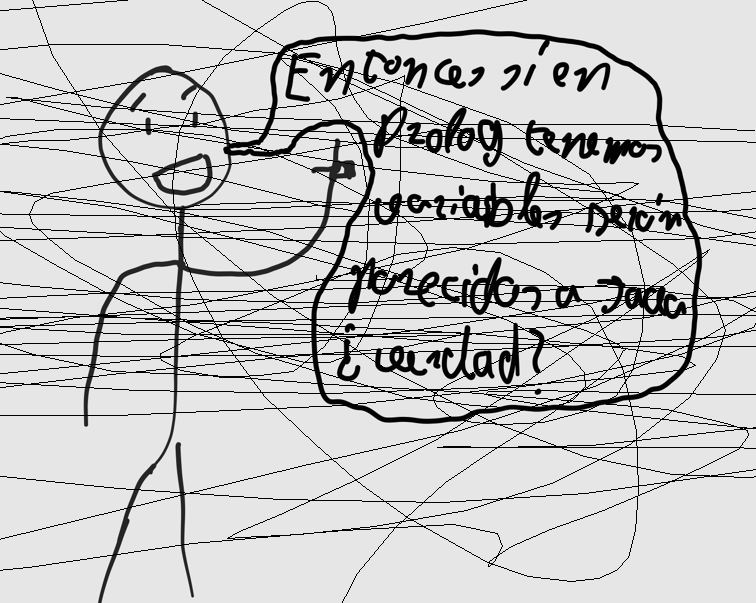 Entonces si en
Prolog tenemos
variables serían
parecidos a Java
¿verdad?